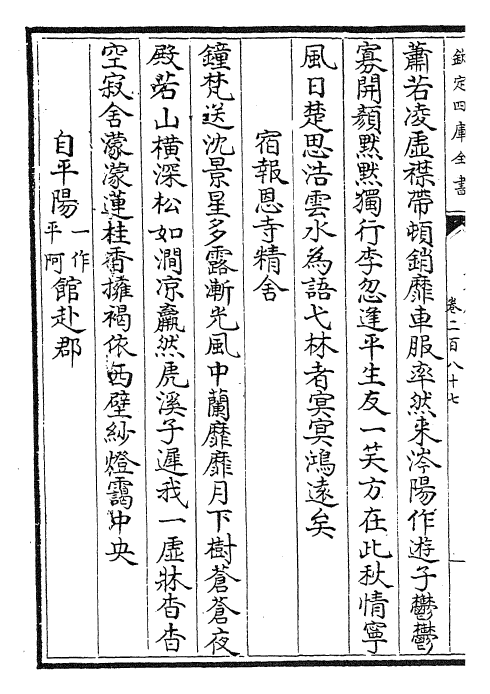 欽定四庫全書
卷二百八十七
蕭若凌虛襟帶頓銷靡車服率然来涔陽作遊子鬱鬱
寡開顔黙黙獨行李忽逢平生友一笑方在此秋情寧
風日楚思浩雲水為語弋林者㝠㝠鴻遠矣
宿報恩寺精舍
鐘梵送沈景星多露漸光風中蘭靡靡月下樹蒼蒼夜
殿若山橫深松如澗凉羸然虎溪子遲我一虛牀杳杳
空寂舍濛濛蓮桂香擁褐依西壁紗燈靄中央
自平陽一作平阿館赴郡